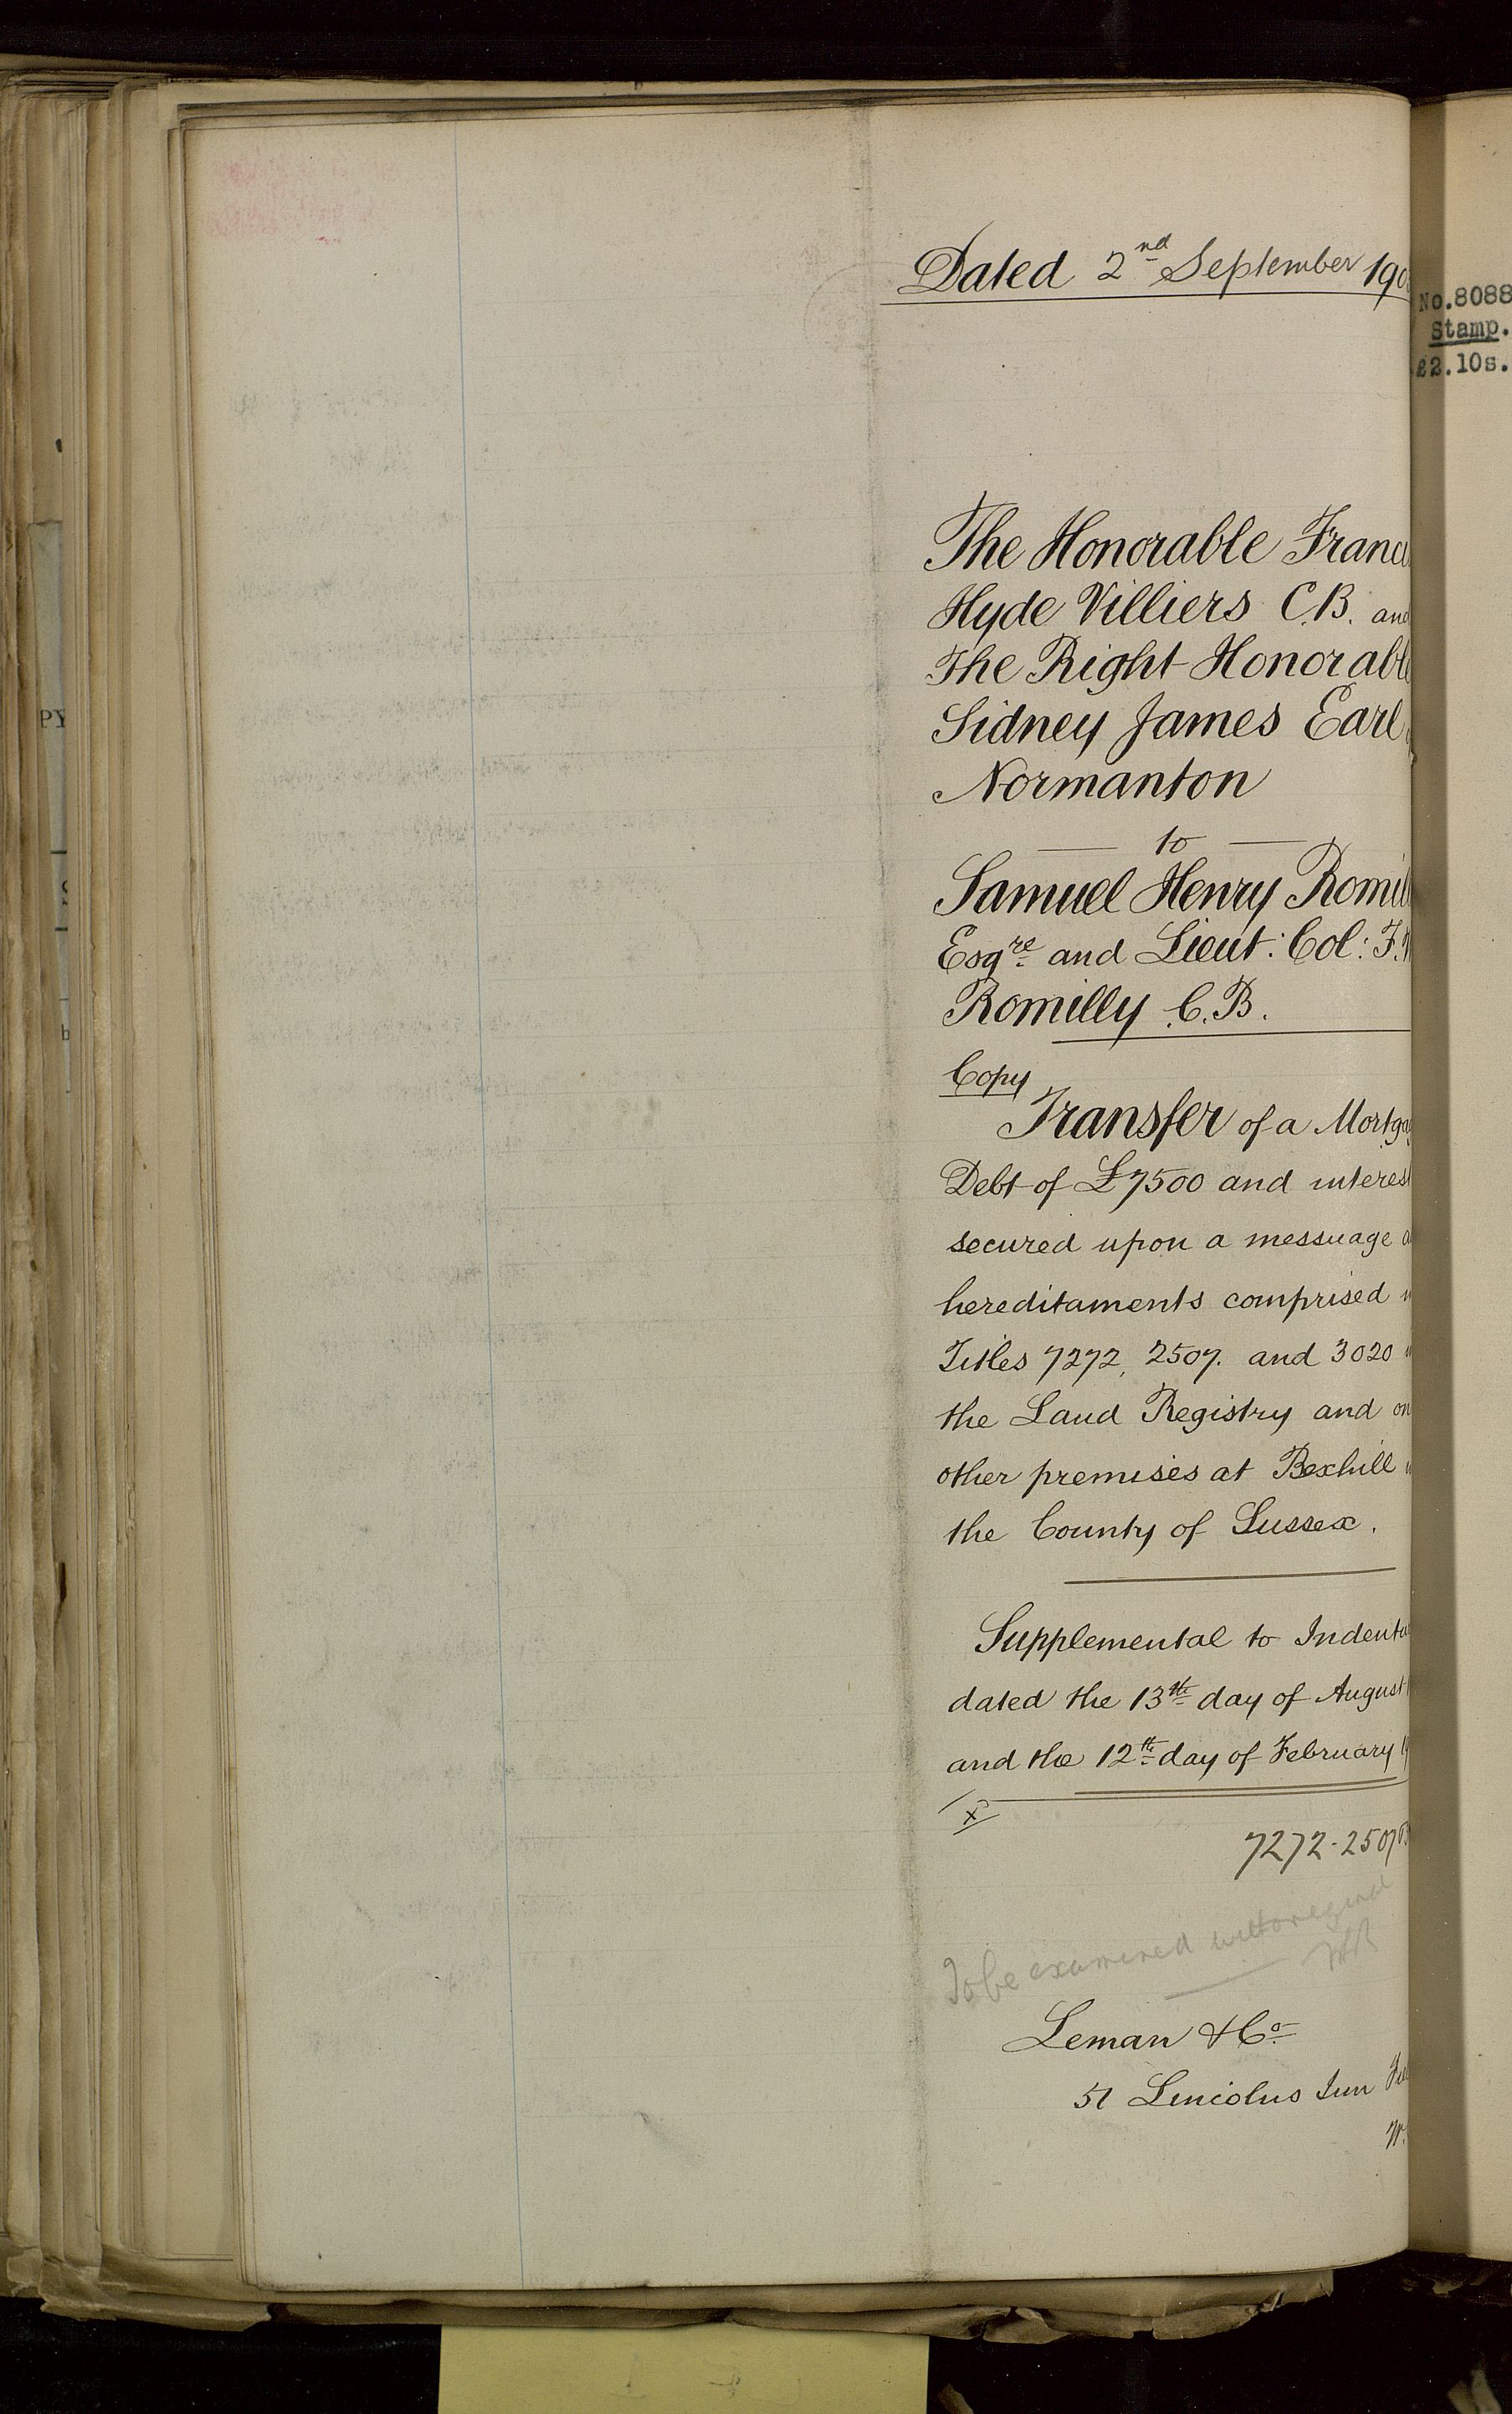 Dated 2nd September 190
The Honorable Franc
Hyde Villiers C.B. and
The Right Honorabl
Sidney James Earl
Normanton
to
Samuel Henry Romil
Esqre and Lieut: Col: F.
Romilly C.B.
Copy
Transfer of a Mortga
Debt of £7500 and interest
secured upon a messuage a
hereditaments comprised
Titles 7272, 2507. and 3020
the Land Registry and on
other premises at Bexhill
the County of Sussex.
Supplemental to Indentu
dated the 13th day of August
and the 12th day of February 19
7272-2507
To be examined with original
Leman & Co
51 Lincolns Inn Fie
W.
No.8088
Stamp.
£2.10s.
PY